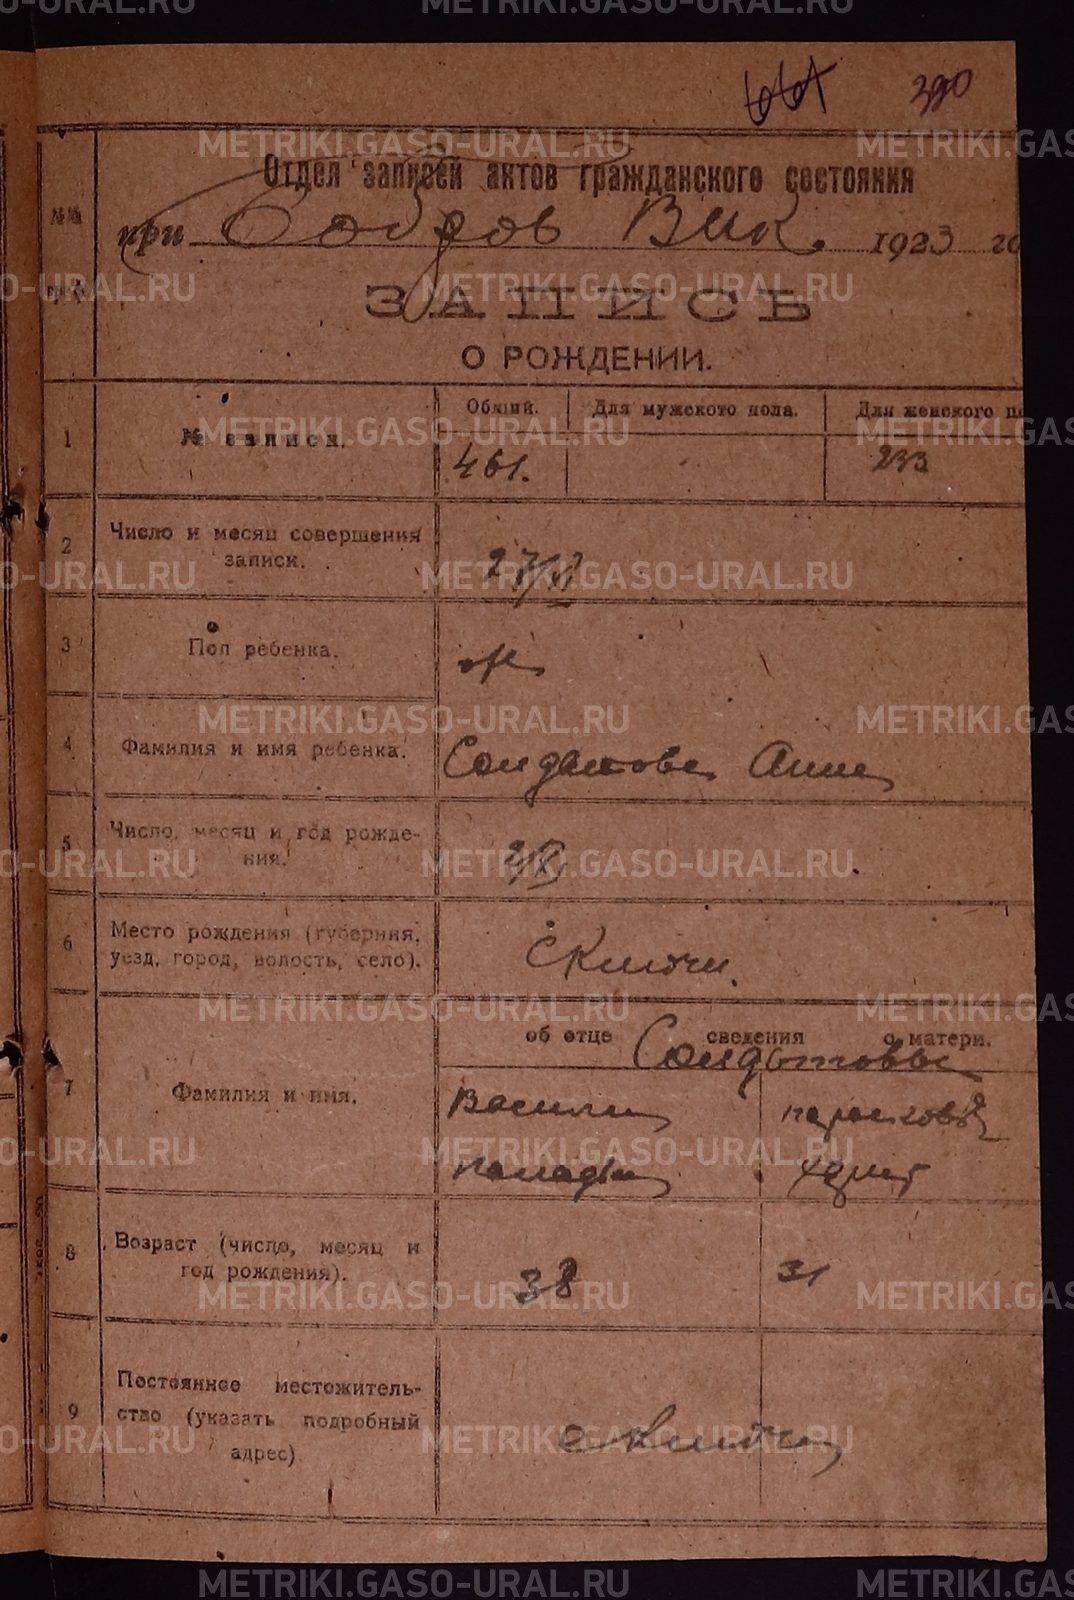 661 390
Отдел записей актов гражданского состояния
№№
при Бобров Вик. 1923 го
ЗАПИСЬ
О РОЖДЕНИИ.
Общий. Для мужского пола. Для женского по
1 № записи. 461. 233
2 Число и месяц совершения
записи. 27/XI
3 Пол ребенка. ж
4 Фамилия и имя ребенка. Солдатова Анна
5 Число, месяц и год рождения. 2/XI
6 Место рождения (губерния,
уезд, город, волость, село). с Ключи.
об отце сведения о матери.
Солдатовы
7 Фамилия и имя. Василий Парасковья
8 Возраст (число, месяц и
год рождения). 38 31
9 Постоянное местожитель-
ство (указать подробный
адрес) с Ключи
METRIKI.GASO-URAL.RU